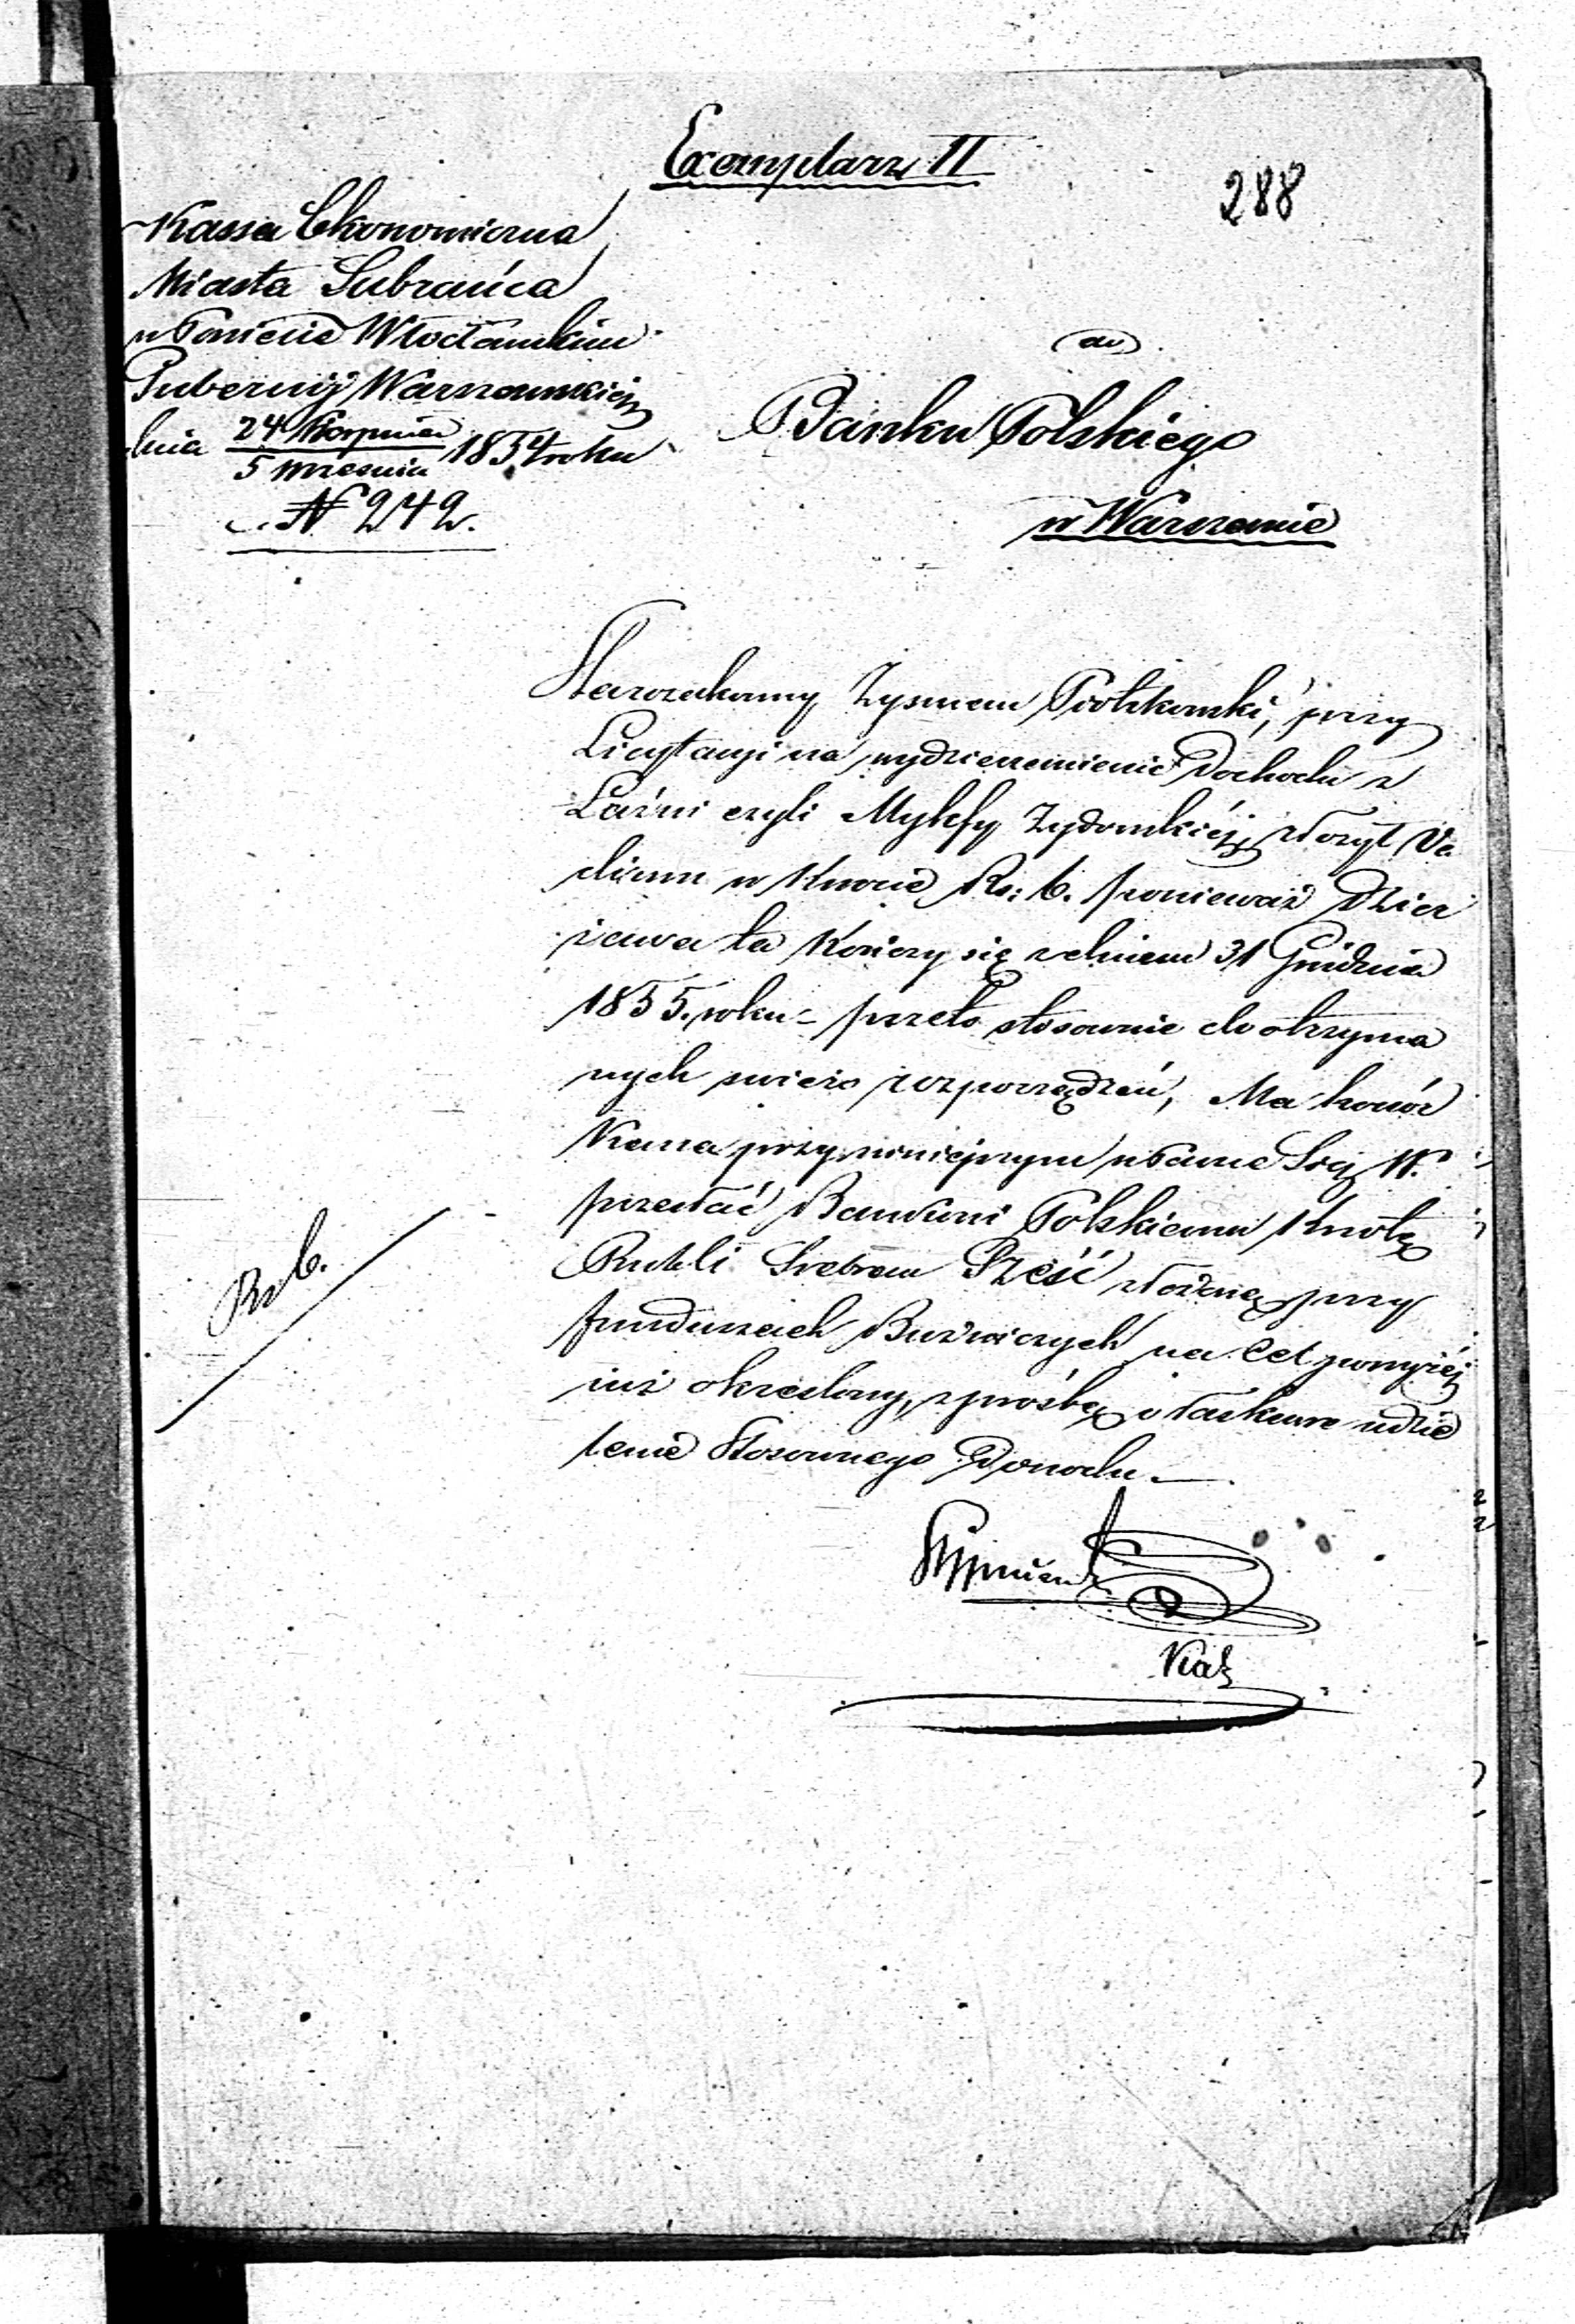 Exemplarz II
288
Kassa Ekonomiczna
Miasta Lubrańca
w Powiecie Włocławskim
Gubernij Warszawskiej
dnia 24 Sierpnia / 5 Września 1854 roku
N 242.
do
Banku Polskiego
w Warszawie
Starozakonny Zysman Piotrkowski, przy
Licytacyi na wydzierżawienie Dochodu z
Łaźni czyli Mykfy Żydowskiéj, złożył Va
dium w Kwocie Rs: 6. ponieważ Dzier
żawa ta Kończy się z dniem 31 Grudnia
1855. roku – przeto stosownie do otrzyma
nych świeżo rozporządzeń, Ma honór
Kassa przy niniejszym w Banco
przesłać Bankowi Polskiemu Kwotę
Rubli Srebrem Sześć złożoną przy
funduszach Buźniczych na Cel powyżéj
już określony, z prośbą o łaskawe udzie
lenie Stosownego Dowodu. —
Rs 6.
Kas